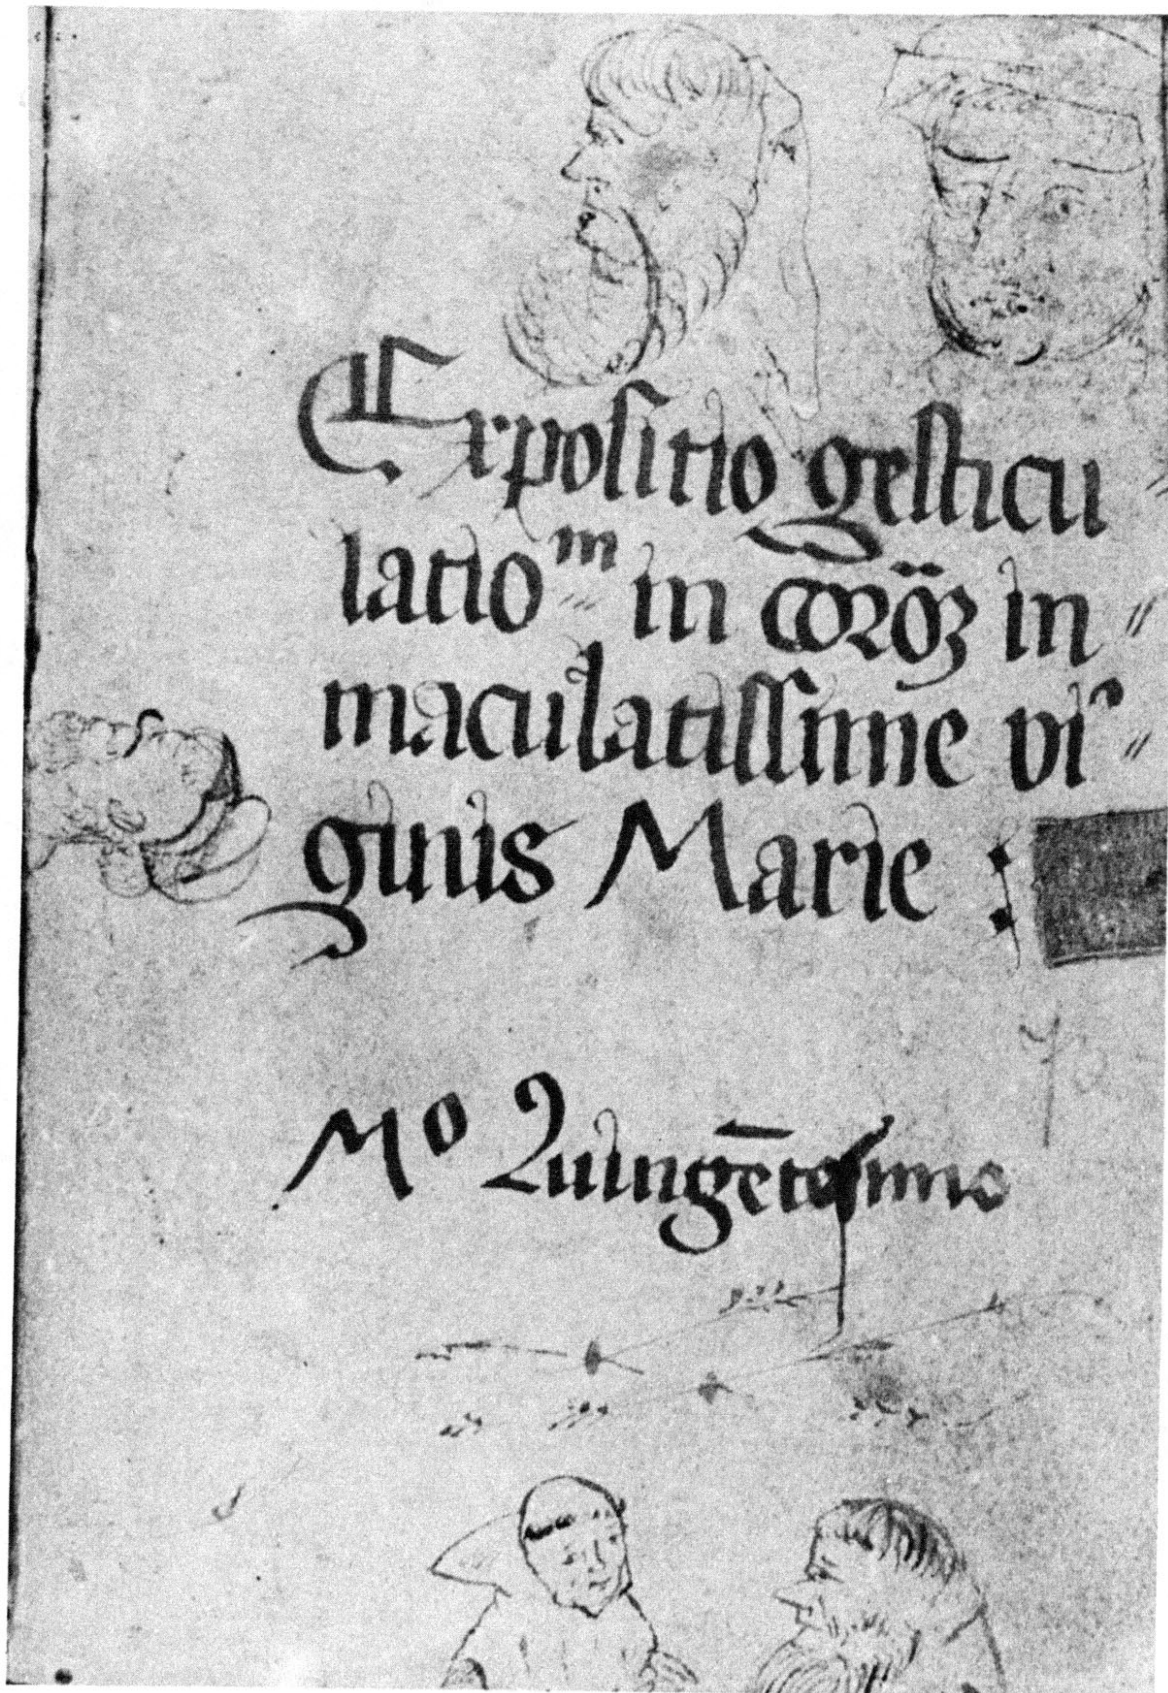 Expositio gesticu
latioᵐ in coroꝫ in
maculatissime vi
ginis Marie :
Mᵒ Quingētesimo